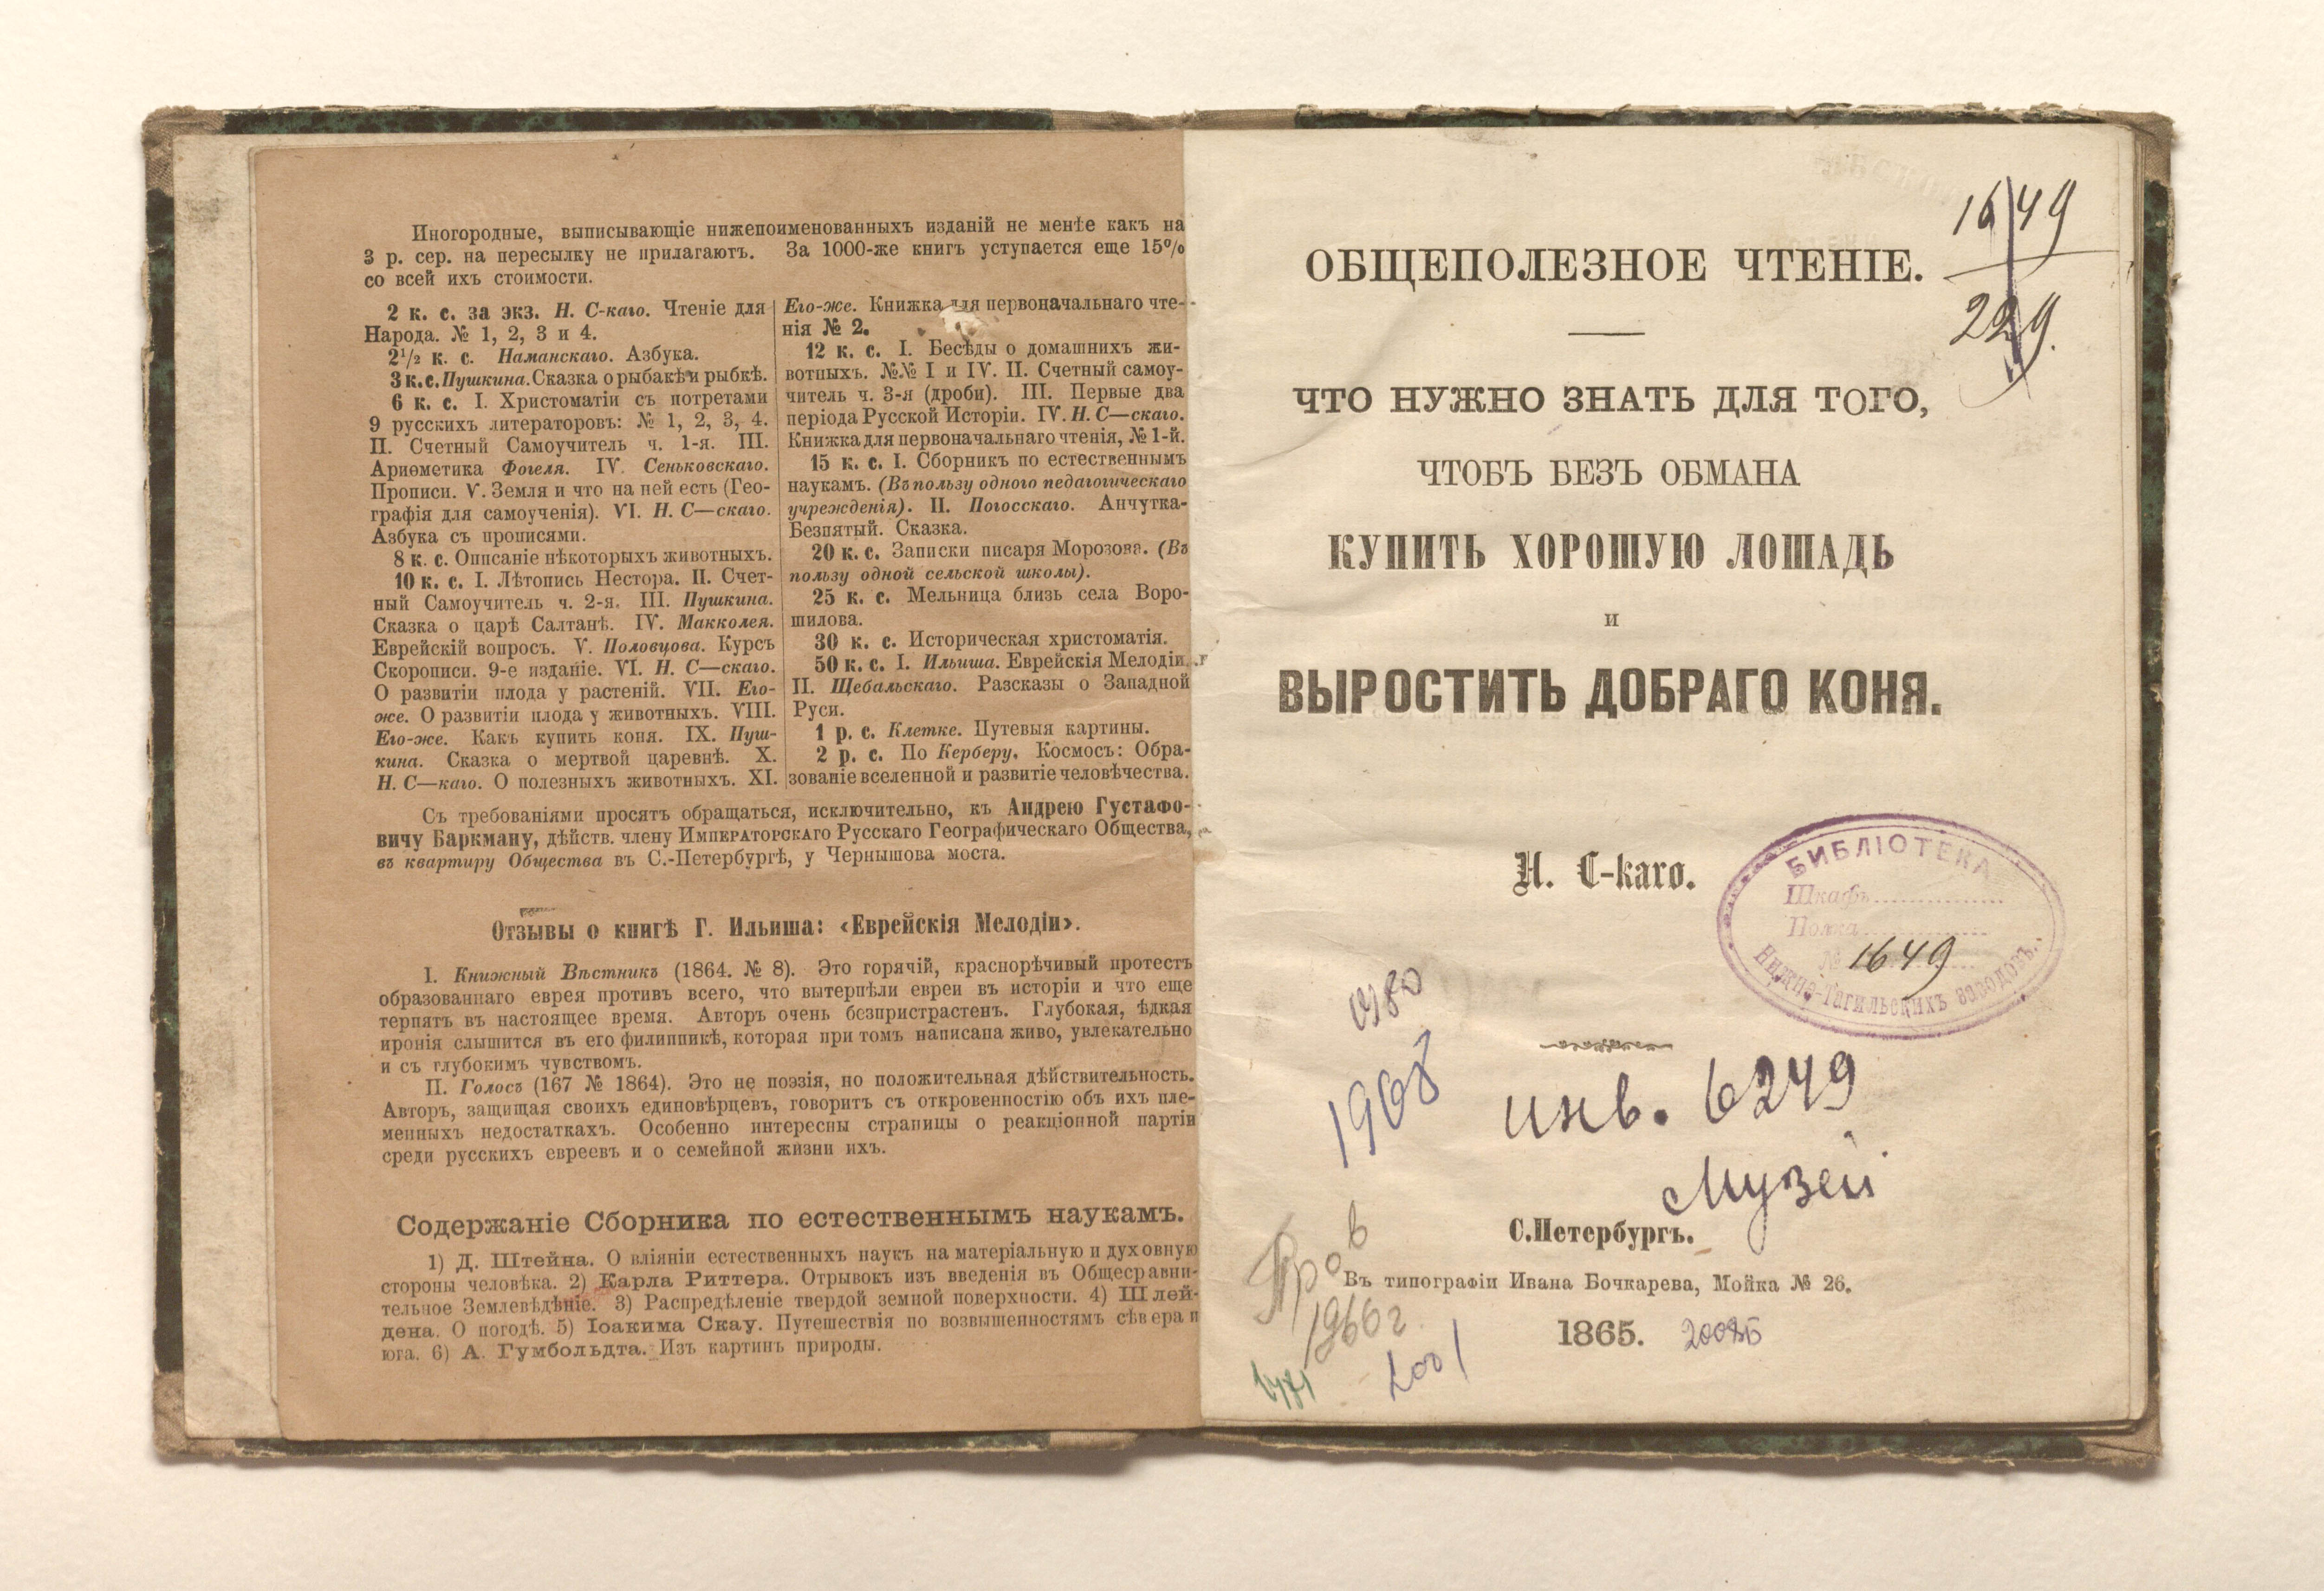 Иногородные, выписывающіе нижепоименованныхъ изданій не менѣе какъ на
3 р. сер. на пересылку не прилагаютъ. За 1000-же книгъ уступается еще 15%
со всей ихъ стоимости.
2 к. с. за экз. Н. С-каго. Чтеніе для
Народа. № 1, 2, 3 и 4.
2½ к. с. Наманскаго. Азбука.
3 к. с. Пушкина. Сказка о рыбакѣ и рыбкѣ.
6 к. с. I. Христоматіи съ потретами
9 русскихъ литераторовъ: № 1, 2, 3, 4.
II. Счетный Самоучитель ч. 1-я. III.
Ариѳметика Фогеля. IV. Сеньковскаго.
Прописи. V. Земля и что на ней есть (Гео-
графія для самоученія). VI. Н. С—скаго.
Азбука съ прописями.
8 к. с. Описаніе нѣкоторыхъ животныхъ.
10 к. с. I. Лѣтопись Нестора. II. Счет-
ный Самоучитель ч. 2-я. III. Пушкина.
Сказка о царѣ Салтанѣ. IV. Макколея.
Еврейскій вопросъ. V. Половцова. Курсъ
Скорописи. 9-е изданіе. VI. Н. С—скаго.
О развитіи плода у растеній. VII. Его-
же. О развитіи плода у животныхъ. VIII.
Его-же. Какъ купить коня. IX. Пуш-
кина. Сказка о мертвой царевнѣ. X.
Н. С—каго. О полезныхъ животныхъ. XI.
Его-же. Книжка для первоначальнаго чте-
нія № 2.
12 к. с. I. Бесѣды о домашнихъ жи-
вотныхъ. №№ I и IV. II. Счетный самоу-
читель ч. 3-я (дроби). III. Первые два
періода Русской Исторіи. IV. Н. С—скаго.
Книжка для первоначальнаго чтенія, № 1-й.
15 к. с. I. Сборникъ по естественнымъ
наукамъ. (Въ пользу одного педагогическаго
учрежденія). II. Погосскаго. Анчутка-
Безпятый. Сказка.
20 к. с. Записки писаря Морозова. (Въ
пользу одной сельской школы).
25 к. с. Мельница близь села Воро-
шилова.
30 к. с. Историческая христоматія.
50 к. с. I. Ильиша. Еврейскія Мелодіи.
II. Щебальскаго. Разсказы о Западной
Руси.
1 р. с. Клетке. Путевыя картины.
2 р. с. По Керберу. Космосъ: Обра-
зованіе вселенной и развитіе человѣчества.
Съ требованіями просятъ обращаться, исключительно, къ Андрею Густафо-
вичу Баркману, дѣйств. члену Императорскаго Русскаго Географическаго Общества,
въ квартиру Общества въ С.-Петербургѣ, у Чернышова моста.
Отзывы о книгѣ Г. Ильиша: «Еврейскія Мелодіи».
I. Книжный Вѣстникъ (1864. № 8). Это горячій, краснорѣчивый протестъ
образованнаго еврея противъ всего, что вытерпѣли евреи въ исторіи и что еще
терпятъ въ настоящее время. Авторъ очень безпристрастенъ. Глубокая, ѣдкая
иронія слышится въ его филиппикѣ, которая при томъ написана живо, увлекательно
и съ глубокимъ чувствомъ.
II. Голосъ (167 № 1864). Это не поэзія, но положительная дѣйствительность.
Авторъ, защищая своихъ единовѣрцевъ, говоритъ съ откровенностію объ ихъ пле-
менныхъ недостаткахъ. Особенно интересны страницы о реакціонной партіи
среди русскихъ евреевъ и о семейной жизни ихъ.
Содержаніе Сборника по естественнымъ наукамъ.
1) Д. Штейна. О вліяніи естественныхъ наукъ на матеріальную и духовную
стороны человѣка. 2) Карла Риттера. Отрывокъ изъ введенія въ Общесравни-
тельное Землевѣдѣніе. 3) Распредѣленіе твердой земной поверхности. 4) Шлей-
дена. О погодѣ. 5) Іоакима Скау. Путешествія по возвышенностямъ сѣвера и
юга. 6) А. Гумбольдта. Изъ картинъ природы.
1649
229.
ОБЩЕПОЛЕЗНОЕ ЧТЕНІЕ.
ЧТО НУЖНО ЗНАТЬ ДЛЯ ТОГО,
ЧТОБЪ БЕЗЪ ОБМАНА
КУПИТЬ ХОРОШУЮ ЛОШАДЬ
И
ВЫРОСТИТЬ ДОБРАГО КОНЯ.
Н. С-каго.
БИБЛІОТЕКА
Шкафъ
Полка
№ 1649
Нижне-Тагильскихъ заводовъ.
1980
1968
инв. 6249
Музей
С.Петербургъ.
Въ типографіи Ивана Бочкарева, Мойка № 26.
Пров
1966 г
1865.
2001
1971